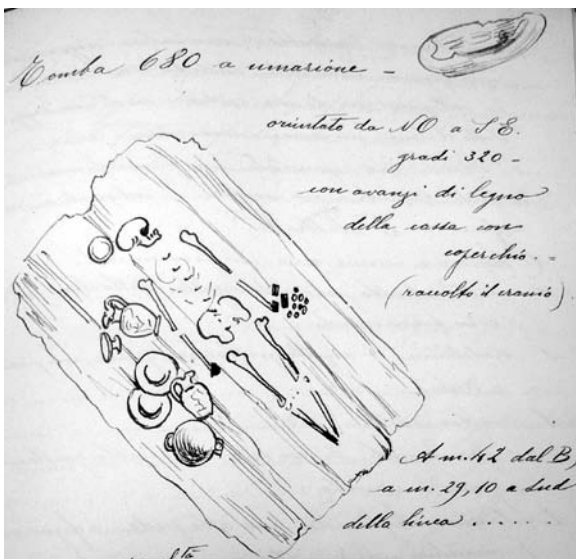 Tomba 680 a umazione -
orientato da NO a S E.
gradi 320 -
con avanzi di legno
della cassa con
coperchio. -
(raccolto il cranio)
A m. 42 dal B,
a m. 29,10 a Sud
della linea ......